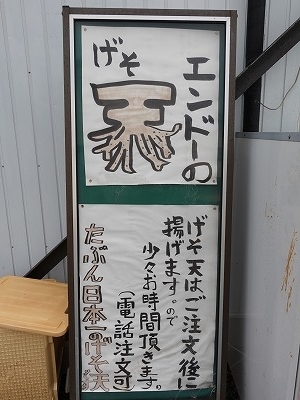 エンドーの
げそ
天
げそ天はご注文後に
揚げます。ので
少々お時間頂きます。
(電話注文可)
たぶん日本一のげそ天